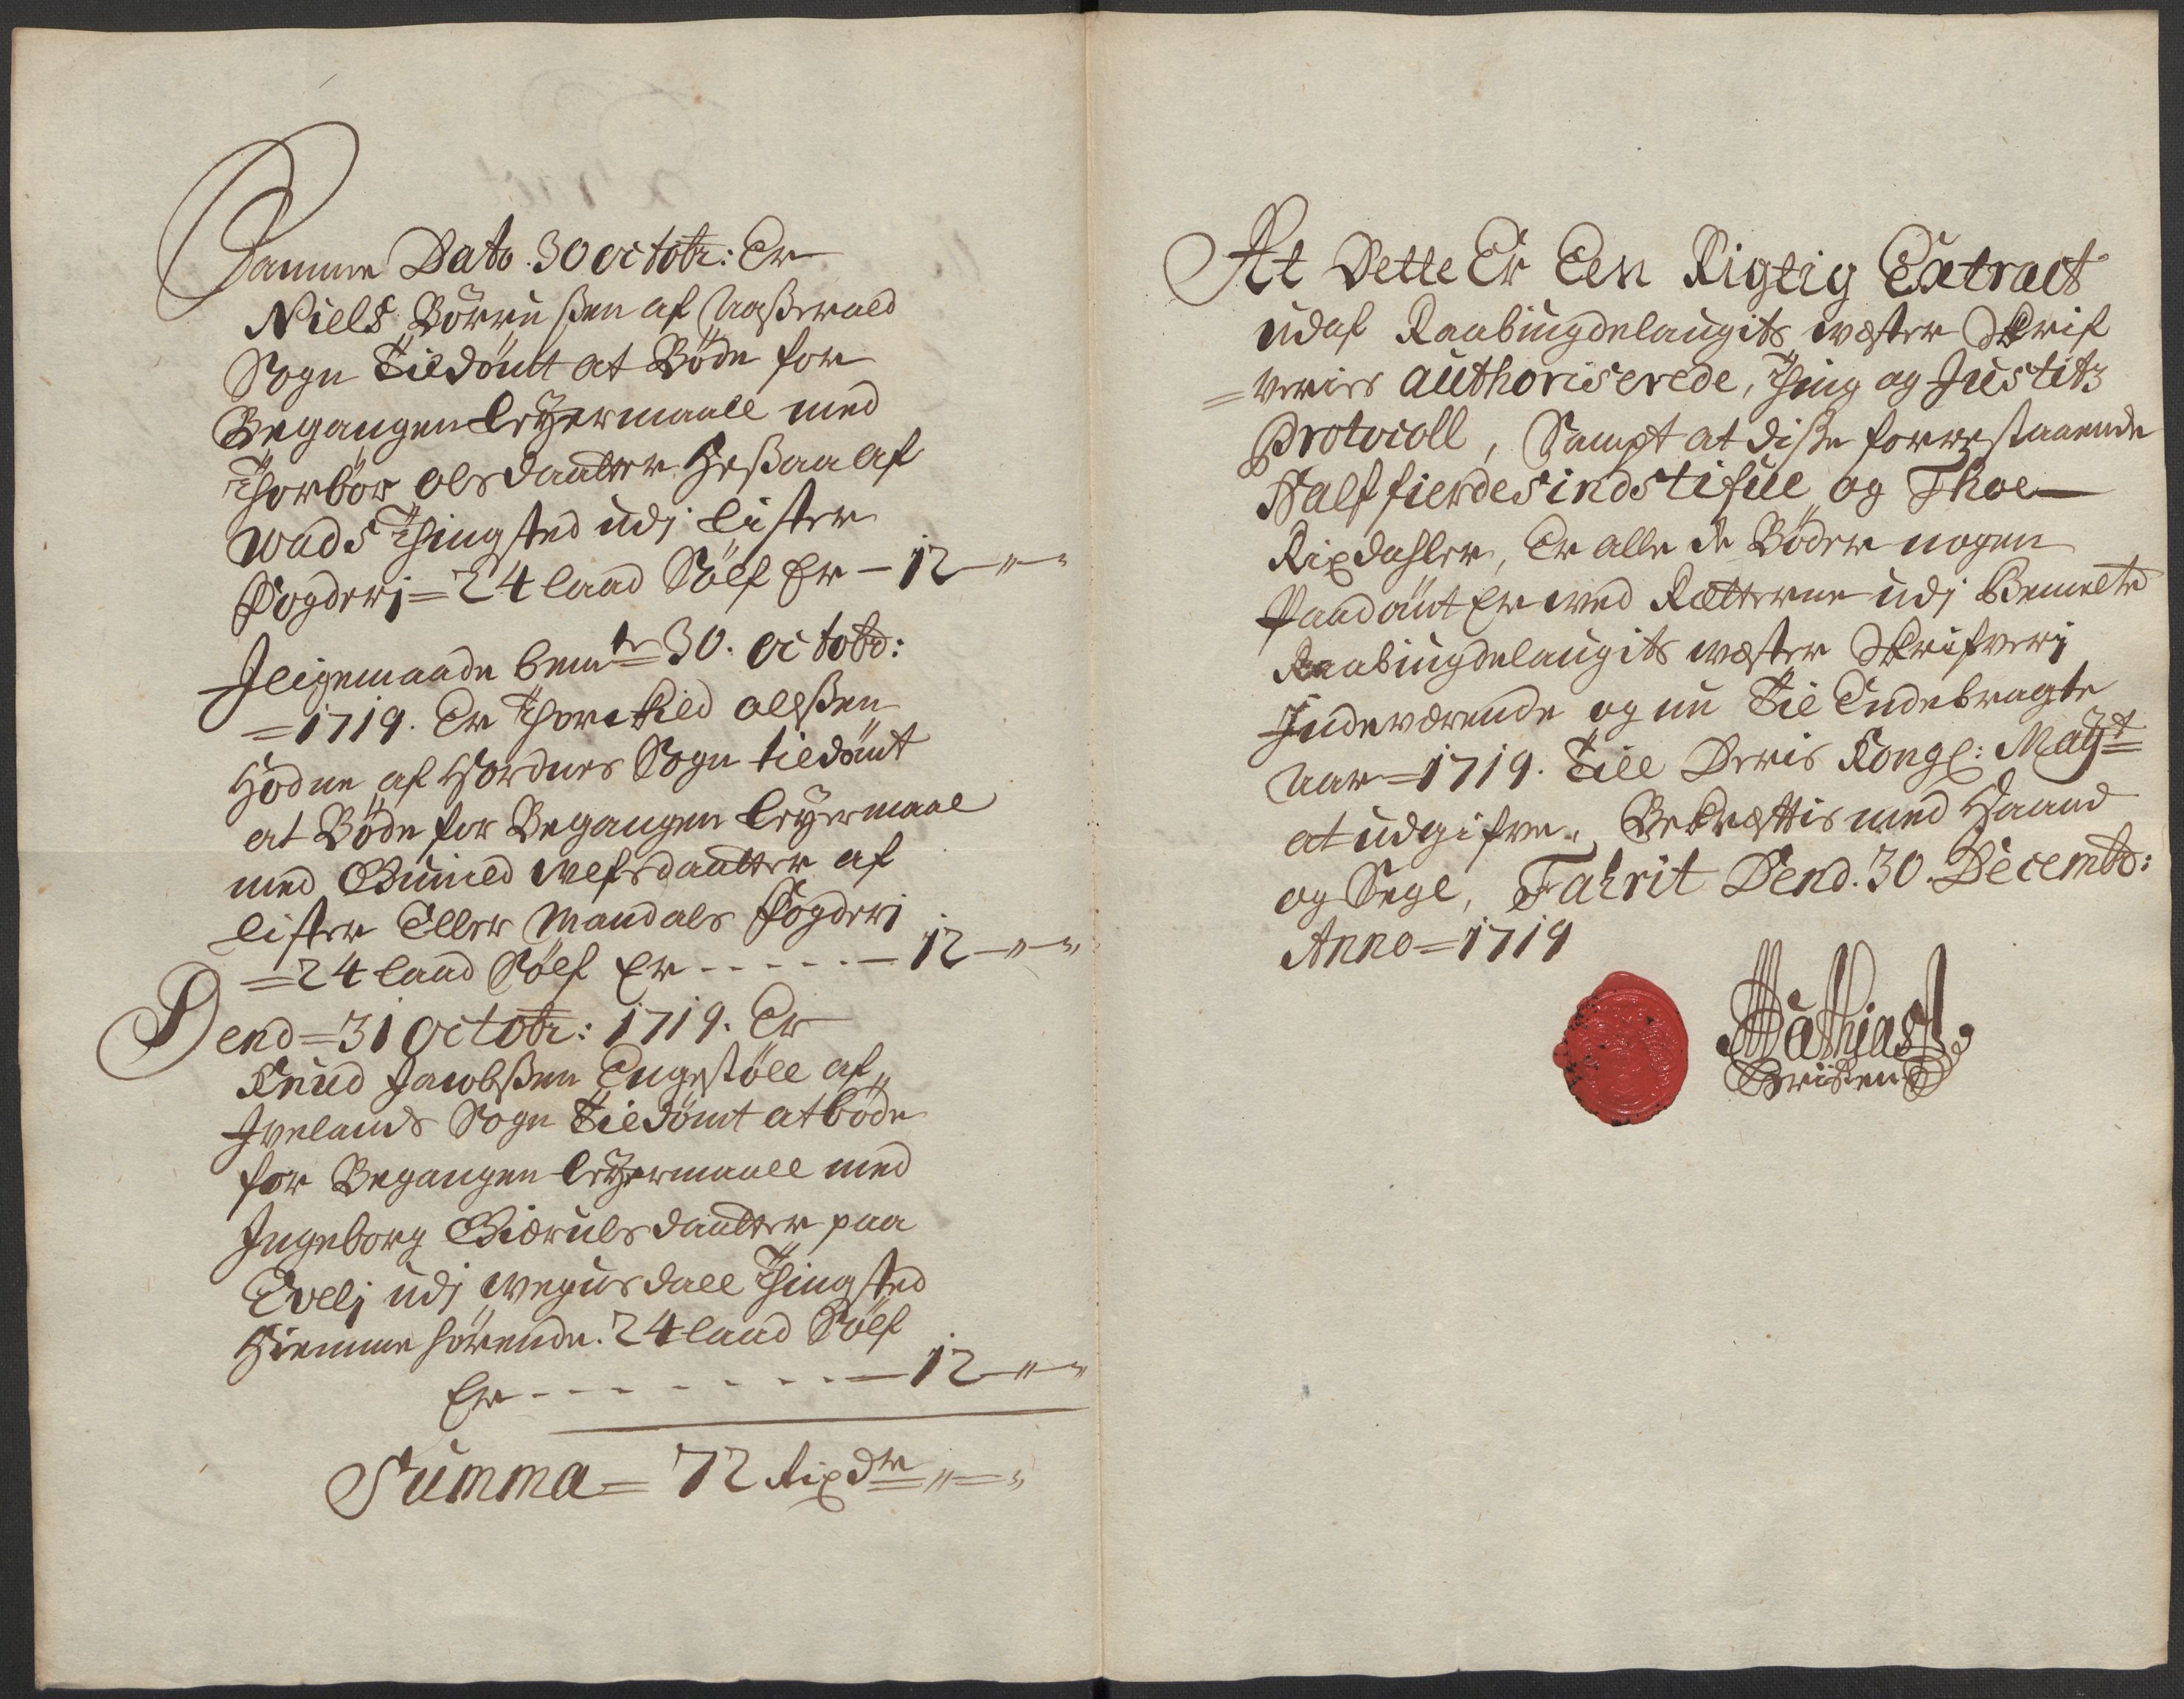 Samme Dato 30 octobr: Er
Niels Börruβen af Aaβerald
Sogn Tildömt at Böde for
Begangen Leÿermaall med
Thorbör olsdaatter Heβaa af
Wads Thingsted udj Lister
Fogderj = 24 laad Sölf Er — 12 — " — "
Jligemaade bemte 30. octobr:
= 1719. Er Thorkild ollβen
Hodne af Hordnes Sogn tildömt
at Böde for Begangen Leÿermaal
med Gunild Wefsdaatter af
Lister Eller Mandals Fogderj
= 24 laad Sölf Er - - - - - — 12 — " — "
Dend = 31 octobr: 1719. Er
Knud Jacobβen Engestöll af
Jvelands Sogn Tildömt at böde
for Begangen Leÿermaall med
Jngeborg Giærulsdaatter paa
Evelj udj Wegusdall Thingsted
Hiemmehörende. 24 laad Sölf
Er - - - - - - - - — 12 — " — "
Summa = 72 Rixdr = " = "
At Dette Er Een Rigtig Extract
udaf Raabiugdelaugits wæster Skrif
= veries authoriserede, Thing og Justitz
Protocoll, Sampt at diβe forrestaaende
Half fierdesindstifue og Thoe —
Rixdahler, Er alle de Böder nogen
Paadömt Er ved Rætterne udj Bemelte
Raabiugdelaugits wæster Skrifverj
Jndeværende og nu Til Endebragte
Aar = 1719. Till Deris Kongl: Maÿt
at udgifve. Bekræftis med Haand
og Segl, Dend. 30. Decembr:
Anno = 1719
Mathias